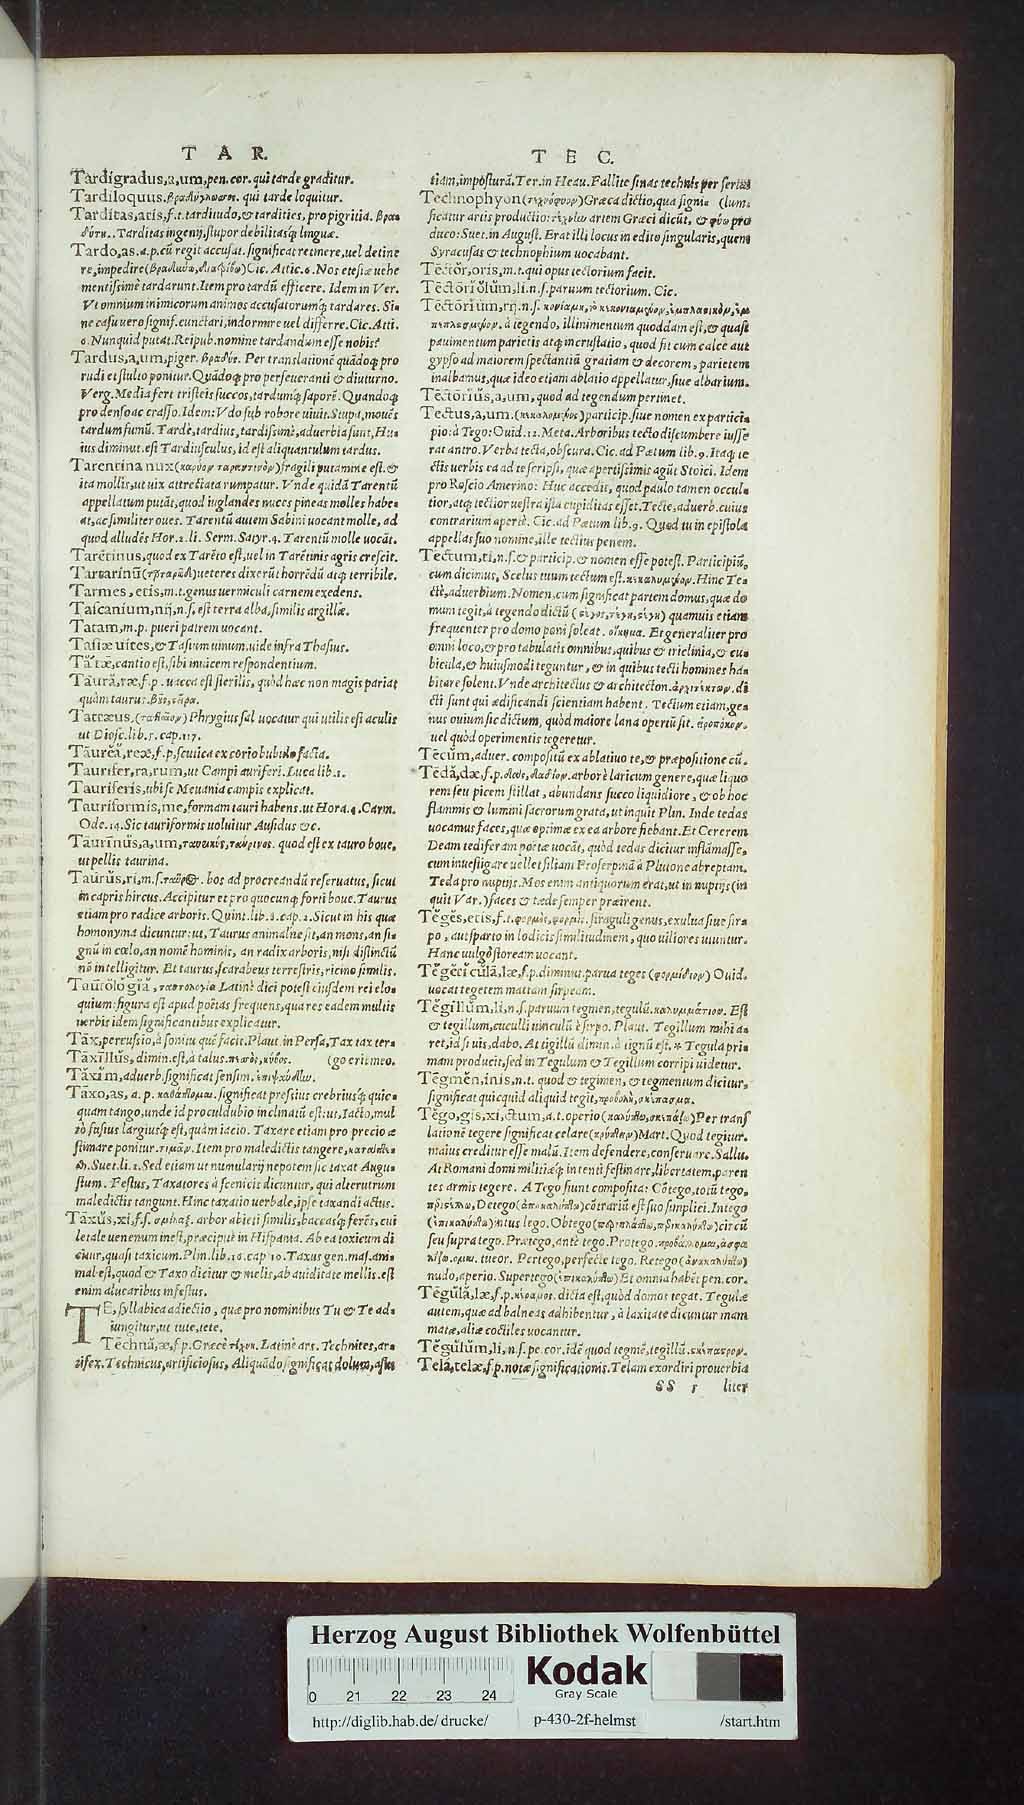 T A R.
Tardigradus,a,um,pen.cor.qui tarde graditur.
Tardiloquus. βραδύγλωσσος. qui tarde loquitur.
Tarditas,atis,f.t.tarditudo,& tardities, pro pigritia. βρα
δύτης. Tarditas ingenij,stupor debilitasq́ linguæ.
Tardo,as.a.p.cū regit accusat.significat retinere,uel detine
re,impedire Cic. Attic.6. Nos etesiæ uehe
mentissimè tardarunt.Item pro tardū efficere. Idem in Ver.
Vt omnium inimicorum animos accusatorumq́; tardares. Si=
ne casu uero signif.cunctari,indormire uel differre.Cic.Atti.
6.Nunquid putat.Reipub.nomine tardandum esse nobis?
Tardus,a,um,piger. βραδύς. Per translationē quādoq; pro
rudi et stulto ponitur.Quādoq; pro perseueranti & diuturno.
Verg.Media fert tristeis succos,tardumq́; saporē. Quandoq;
pro denso ac crasso.Idem: Vdo sub robore uiuit.Stupa,mouēs
tardum fumū. Tardè,tardius,tardissimè,aduerbia sunt,Hu=
ius diminut.est Tardiusculus,id est aliquantulum tardus.
Tarentina nux(καρύον ταρεντινὸν)fragili putamine est.&
ita mollis,ut uix attrectata rumpatur. Vnde quidā Tarentū
appellatum putāt,quod iuglandes nuces pineas molles habe=
at,ac similiter oues. Tarentū autem Sabini uocant molle, ad
quod alludēs Hor.2.li. Serm. Satyr.4. Tarentū molle uocāt.
Tarētinus,quod ex Tarēto est,uel in Tarētinis agris crescit.
Tartarinū ueteres dixerūt horrēdū atq; terribile.
Tarmes, etis,m.t.genus uermiculi carnem exedens.
Tascanium,nij,n.s.est terra alba,similis argillæ.
Tatam,m.p. pueri patrem uocant.
Tasiæ uites,& Tasium uinum.uide infra Thasius.
Tatæ,cantio est,sibi inuicem respondentium.
Taura,ræ,f.p. uacca est sterilis, quòd hæc non magis pariat
quàm taurus.
Tatræus, Phrygius sal uocatur qui utilis est aculis
ut Diosc.lib.5.cap.117.
Taurea,reæ,f.p.scutica ex corio bubulo facta.
Taurifer,ra,rum,ut Campi auriferi. Luca lib.1.
Tauriferis,ubi se Meuania campis explicat.
Tauriformis,me,formam tauri habens.ut Hora.4.Carm.
Ode.14.Sic tauriformis uoluitur Aufidus &c.
Taurinus,a,um, quod est ex tauro boue,
ut pellis taurina.
Taurus,ri,m.s. bos ad procreandū reseruatus,sicut
in capris hircus. Accipitur et pro quocunq; forti boue.Taurus
etiam pro radice arboris. Quint.lib.8.cap.2.Sicut in his quæ
homonyma dicuntur:ut, Taurus animal ne sit,an mons,an si=
gnū in cœlo,an nomē hominis, an radix arboris,nisi distinctū
nō intelligitur. Et taurus,scarabeus terrestris,ricino similis.
Tautologia, ταυτολογία Latinè dici potest eiusdem rei elo=
quium: figura est apud poëtas frequens,qua res eadem multis
uerbis idem significantibus explicatur.
Tax,percussio,à sonitu quē facit.Plaut.in Persa,Tax tax ter=
Taxillus, dimin.est,à talus. (go erit meo.
Taxim,aduerb.significat sensim.
Taxo,as, a. p. significat pressius crebriusq́; quic=
quam tango,unde id proculdubio inclinatū est:ut,Iacto,mul
tò fusius largiusq́; est,quàm iacio. Taxare etiam pro precio æ
stimare ponitur. Item pro maledictis tangere,
Suet.li.2.Sed etiam ut numularij nepotem sic taxat Augu=
stum. Festus, Taxatores à scenicis dicuntur, qui alterutrum
maledictis tangunt. Hinc taxatio uerbale,ipse taxandi actus.
Taxus,xi,f.s. σμίλαξ. arbor abieti similis,baccasq́; ferēs, cui
letale uenenum inest,præcipuè in Hispania. Ab ea toxicum di
citur,quasi taxicum. Plin.lib.16.cap 10. Taxus gen.mas.ani=
mal est,quod & Taxo dicitur & melis,ab auiditate mellis.est
enim aluearibus infestus.
TE, syllabica adiectio, quæ pro nominibus Tu & Te ad=
iungitur,ut tute,tete.
Techna,æ,f.p.Græcè τέχνη.Latinè ars. Technites,ar=
tifex.Technicus,artificiosus, Aliquādo significat dolum,astu
T E C.
tiam,imposturā.Ter.in Heau.Fallite sinas technis per seruos
Technophyon Græca dictio,qua signi= (lum.
ficatur artis productio: artem Græci dicūt, & φύω pro
duco: Suet.in August. Erat illi locus in edito singularis,quem
Syracusas & technophium uocabant.
Tector,oris,m.t.qui opus tectorium facit.
Tectoriolum,li.n.s.paruum tectorium. Cic.
Tectorium,rij.n.s.
à tegendo, illinimentum quoddam est,& quasi
pauimentum parietis atq; incrustatio, quod fit cum calce aut
gypso ad maiorem spectantiū gratiam & decorem, parietem
inalbamus,quæ ideo etiam ablatio appellatur,siue albarium.
Tectorius,a,um,quod ad tegendum pertinet.
Tectus,a,um. particip.siue nomen ex partici=
pio:à Tego:Ouid.12.Meta.Arboribus tecto discumbere iusse
rat antro. Verba tecta,obscura.Cic.ad Pætum lib.9. Itaq; te
ctis uerbis ea ad te scripsi, quæ apertissimis agūt Stoici. Idem
pro Roscio Amerino: Huc accedit, quod paulo tamen occul=
tior,atq; tectior uestra ista cupiditas esset.Tecte,aduerb.cuius
contrarium apertè. Cic.ad Pætum lib.9. Quod tu in epistola
appellas suo nomine,ille tectius penem.
Tectum,ti,n.s.& particip.& nomen esse potest. Participiū,
cum dicimus, Scelus tuum tectum est. Hinc Te=
ctè,aduerbium.Nomen,cum significat partem domus,quæ do
mum tegit,à tegendo dictū quamuis etiam
frequenter pro domo poni soleat. οἴκημα. Et generaliter pro
omni loco,& pro tabulatis omnibus,quibus & triclinia,& cu=
bicula,& huiusmodi teguntur, & in quibus tecti homines ha=
bitare solent. Vnde architectus & architecton. di=
cti sunt qui ædificandi scientiam habent. Tectum etiam,ge=
nus ouium sic dictum, quòd maiore lana opertū sit.
uel quòd operimentis tegeretur.
Tecum,aduer. compositū ex ablatiuo te,& præpositione cū.
Teda,dæ,f.p. arborē laricum genere,quæ liquo
rem seu picem stillat, abundans succo liquidiore, & ob hoc
flammis & lumini sacrorum grata,ut inquit Plin. Inde tedas
uocamus faces,quæ optimæ ex ea arbore fiebant. Et Cererem
Deam tediferam poëtæ uocāt, quòd tedas dicitur inflāmasse,
cum inuestigare uellet filiam Proserpinā à Plutone abreptam.
Teda pro nuptijs.Mos enim antiquorum erat,ut in nuptijs(in
quit Var.)faces & tædæ semper præirent.
Teges,etis,f.t. straguli genus,ex ulua siue sir=
po, aut sparto in lodicis similitudinem, quo uiliores utuntur.
Hanc uulgò stoream uocant.
Tegeticula,læ,f.p.diminut.parua teges Ouid.
uocat tegetem mattam sirpeam.
Tegillum,li,n.s.paruum tegmen,tegulū. Est
& tegillum,cuculli uinculū è sirpo. Plaut. Tegillum mihi a=
ret,id si uis,dabo. At tigillū dimin.à tignū est.* Tegula pri=
mam producit,sed in Tegulum & Tegillum corripi uidetur.
Tegmen,inis,n.t. quod & tegimen, & tegmentum dicitur,
significat quicquid aliquid tegit,
Tego,gis,xi,ctum,a.t.operio Per trans
lationē tegere significat celare Mart. Quod tegitur.
maius creditur esse malū. Item defendere,conseruare. Sallu.
At Romani domi militiæq́; intenti festinare,libertatem,paren
tes armis tegere. A Tego fiunt composita: Cōtego,totū tego,
Detego cōtrariū est suo simplici. Intego
intus tego. Obtego circū
seu supra tego. Prætego,antè tego. Protego.
tueor. Pertego,perfecte tego. Retego
nudo,aperio. Supertego Et omnia habēt pen.cor.
Tegula,læ,f.p. dicta est,quòd domos tegat. Tegulæ
autem,quæ ad balneas adhibentur, à laxitate dicuntur mam
matæ,aliæ coctiles uocantur.
Tegulum,li,n.s.pe.cor.idē quod tegmē,tegillū.
Tela,telæ,f.p.notæ significationis.Telam exordiri prouerbia
SS r liter
Herzog August Bibliothek Wolfenbüttel
0 21 22 23 24
Kodak
Gray Scale
http://diglib.hab.de/drucke/ p-430-2f-helmst /start.htm